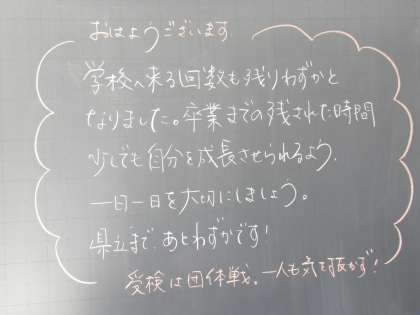 おはようございます
学校へ来る回数も残りわずかと
なりました。卒業までの残された時間
少しでも自分を成長させられるよう、
一日一日を大切にしましょう。
県立まで、あとわずかです!
受検は団体戦。一人も気を抜かず!